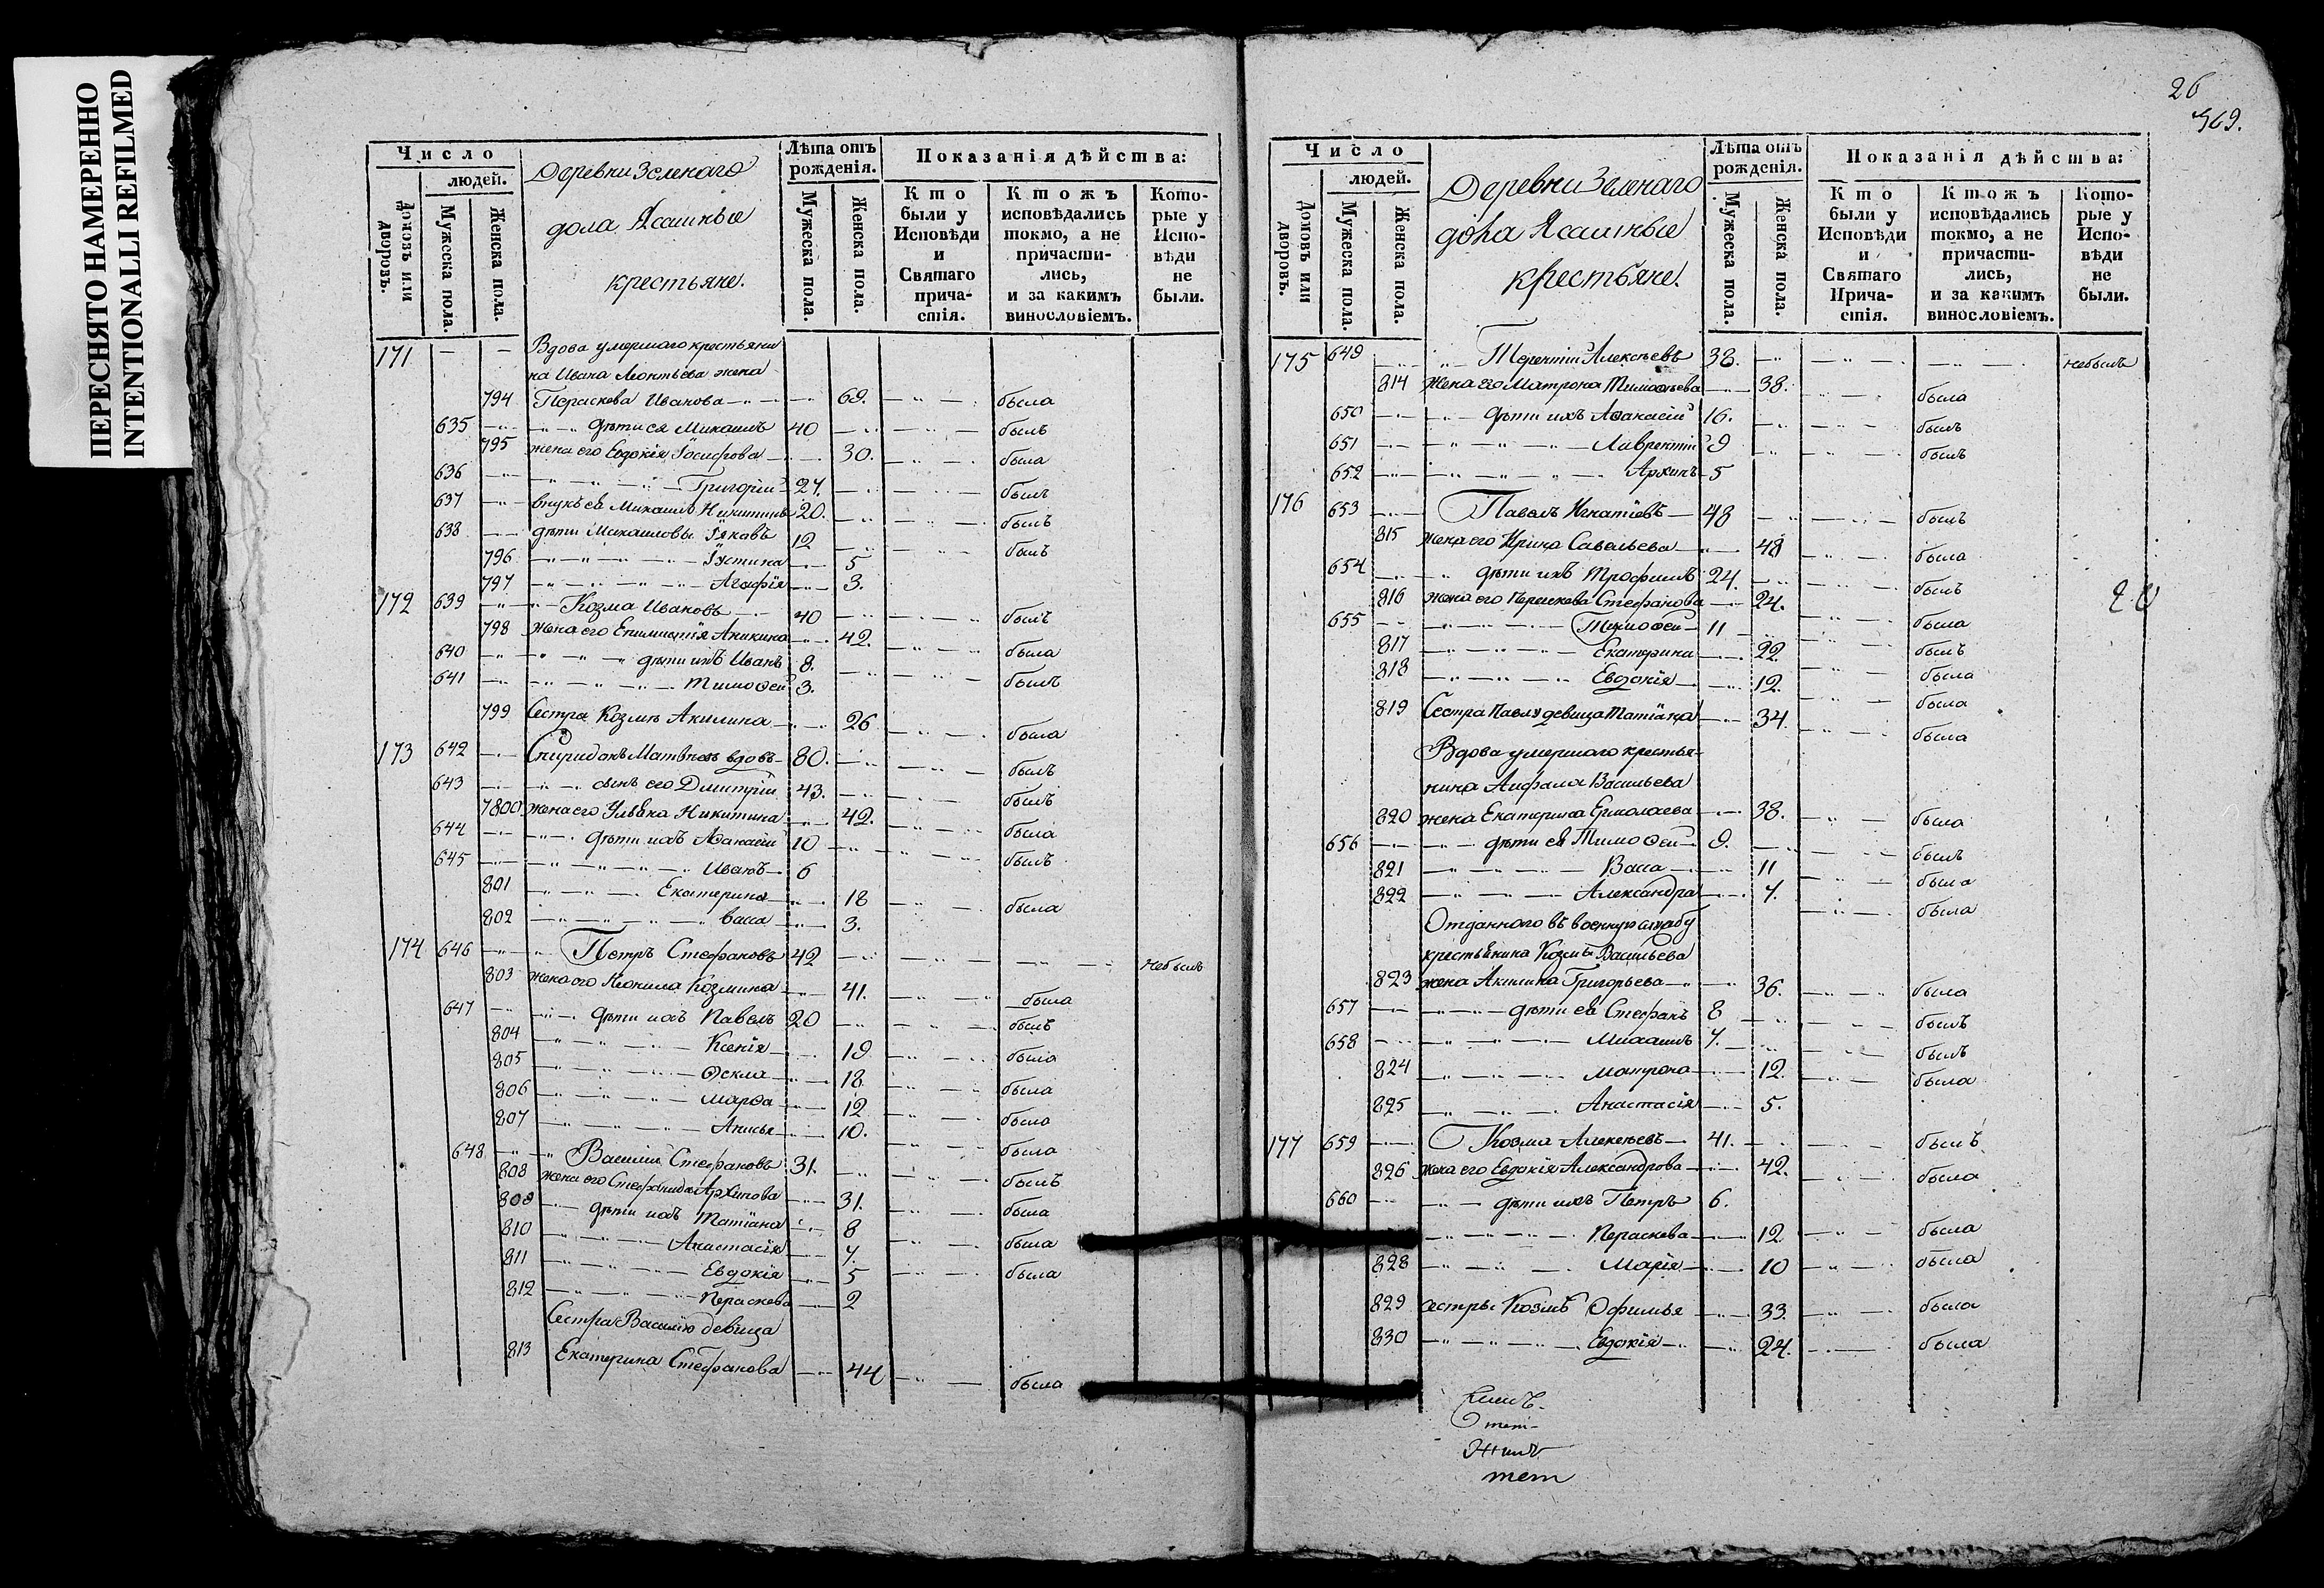 ПЕРЕСНЯТО НАМЕРЕННО
INTENTIONALLI REFILMED
Число
людей.
Домовъ или дворовъ.
Мужеска пола.
Женска пола.
Деревни Зеленаго
дола Ясашные
крестьяне.
Лѣта отъ рожденія.
Мужеска пола.
Женска пола.
Показанія дѣйства:
Кто были у Исповѣди и Святаго прича-стія.
Ктожъ исповѣдались токмо, а не причасти-лись, и за какимъ винословіемъ.
Кото-рые у Испо-вѣди не были.
171 Вдова умершаго крестьяни
на Ивана Леонтьева жена
794 Пераскева Иванова 69. была
635 дѣти ея Михаилъ 40 былъ
795 жена его Евдокія Іосифова 30. была
636 Григорій 27. былъ
637 внукъ ея Михаилъ Никитинъ 20. былъ
638 дѣти Михаиловы Іяковъ 12 былъ
796 Іустина 5
797 Агафія 3.
172 639 Козма Ивановъ 40 былъ
798 жена его Епимистія Аникина 42. была
640 дѣти ихъ Иванъ 8. былъ
641 Тимоѳей 3.
799 Сестра Козмѣ Акилина 26 была
173 642 Спиридонъ Матвѣевъ вдовъ 80. былъ
643 сынъ его Димитрій 43. былъ
7800 жена его Ульяна Никитина 42. была
644 дѣти ихъ Аѳанасій 10 былъ
645 Иванъ 6
801 Екатерина 18 была
802 васса 3.
174 646 Петръ Стефановъ 42 небылъ
803 жена его Неонила Козмина 41. была
647 дѣти ихъ Павелъ 20 былъ
804 Ксенія 19 была
805 Ѳекла 18 была
806 Марѳа 12 была
807 Анисья 10. была
648 Василій Стефановъ 31. былъ
808 жена его Стефанида Архипова 31. была
809 дѣти ихъ Татіана 8 была
810 Анастасія 7. была
811 Евдокія 5
812 Пераскева 2
Сестра Василію девица
813 Екатерина Стефанова 44 была
26
369.
Число
людей.
Домовъ или дворовъ.
Мужеска пола.
Женска пола.
Деревни Зеленаго
дола Ясашные
крестьяне.
Лѣта отъ рожденія.
Мужеска пола.
Женска пола.
Показанія дѣйства:
Кто были у Исповѣди и Святаго Прича-стія.
Ктожъ исповѣдались токмо, а не причасти-лись, и за какимъ винословіемъ.
Кото-рые у Испо-вѣди не были.
175 649 Терентій Алексѣевъ 38. небылъ
814 жена его Матрона Тимоѳеева 38. была
650 дѣти ихъ Аѳанасій 16. былъ
651 Лаврентій 9 былъ
652 Архипъ 5
176 653 Павелъ Игнатіевъ 48 былъ
815 жена его Ирина Савельева 48 была
654 дѣти ихъ Трофимъ 24. былъ
816 жена его Пераскева Стефанова 24. была
655 Тимоѳей 11 былъ
817 Екатерина 22. была
818 Евдокія 12. была
819 Сестра Павлу девица Татіана 34. была
Вдова умершаго крестья-
нина Анфала Васильева
820 жена Екатерина Ермолаева 38. была
656 дѣти ея Тимоѳей 9. былъ
821 Васса 11 была
822 Александра 7. была
Отданного въ военную службу
крестьянина Козмы Васильева
823 жена Акилина Григорьева 36. была
657 дѣти ея Стефанъ 8 былъ
658 Михаилъ 7. былъ
824 Матрона 12. была
825 Анастасія 5.
177 659 Козма Алексѣевъ 41. былъ
826 жена его Евдокія Александрова 42. была
660 дѣти ихъ Петръ 6.
Пераскева 12 была
828 Марія 10 была
829 сестры Козмѣ Офимья 33. была
830 Евдокія 24. была